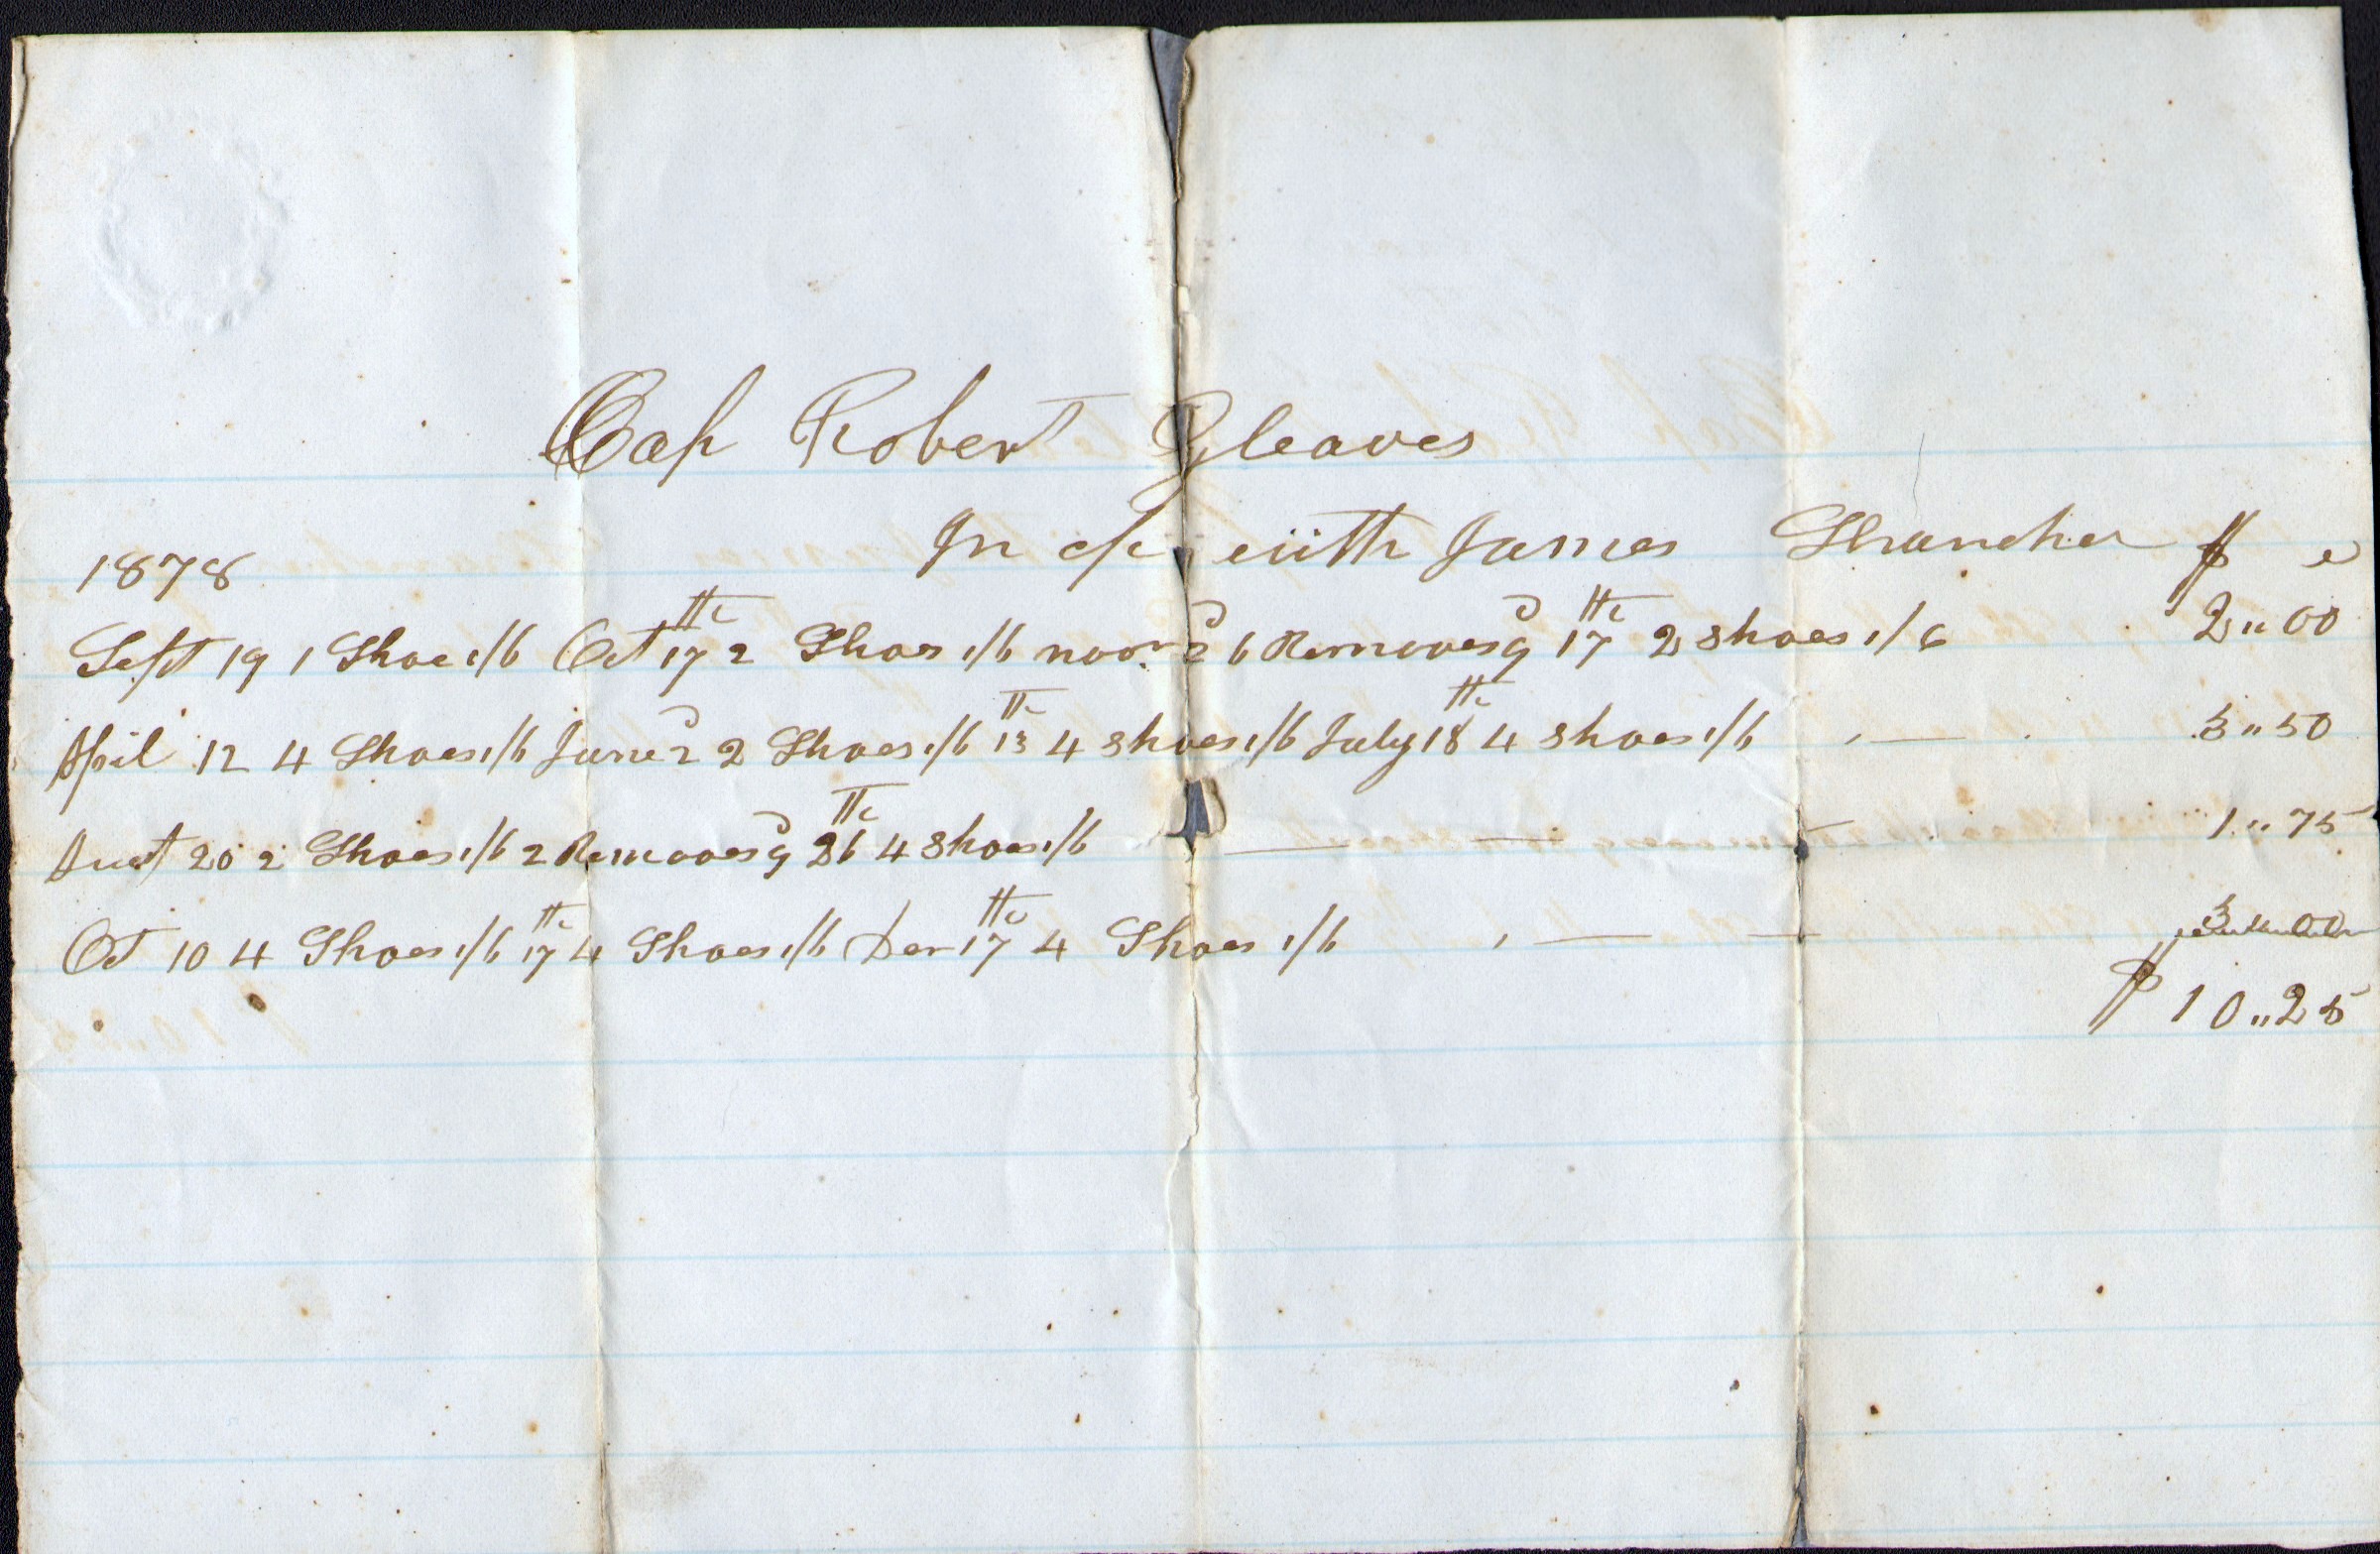 Cap Robert Gleaves
In a/c with James $ c
1878
Sept 19 1 Shoe 1/6 Oct 17th 2 Shoes 1/6 nov 2d 6 Removes 9d 17th 2 shoes 1/6 2"00
April 12 4 Shoes 1/6 June 2d 2 Shoes 1/6 13th 4 shoes 1/6 July 18th 4 shoes 1/6 3"50
Aust 20 2 Shoes 1/6 2 Removes 9d 26th 4 shoes 1/6 1"75
Oct 10 4 Shoes 1/6 17th 4 Shoes 1/6 Dec 17th 4 Shoes 1/6 3"00
$10"25